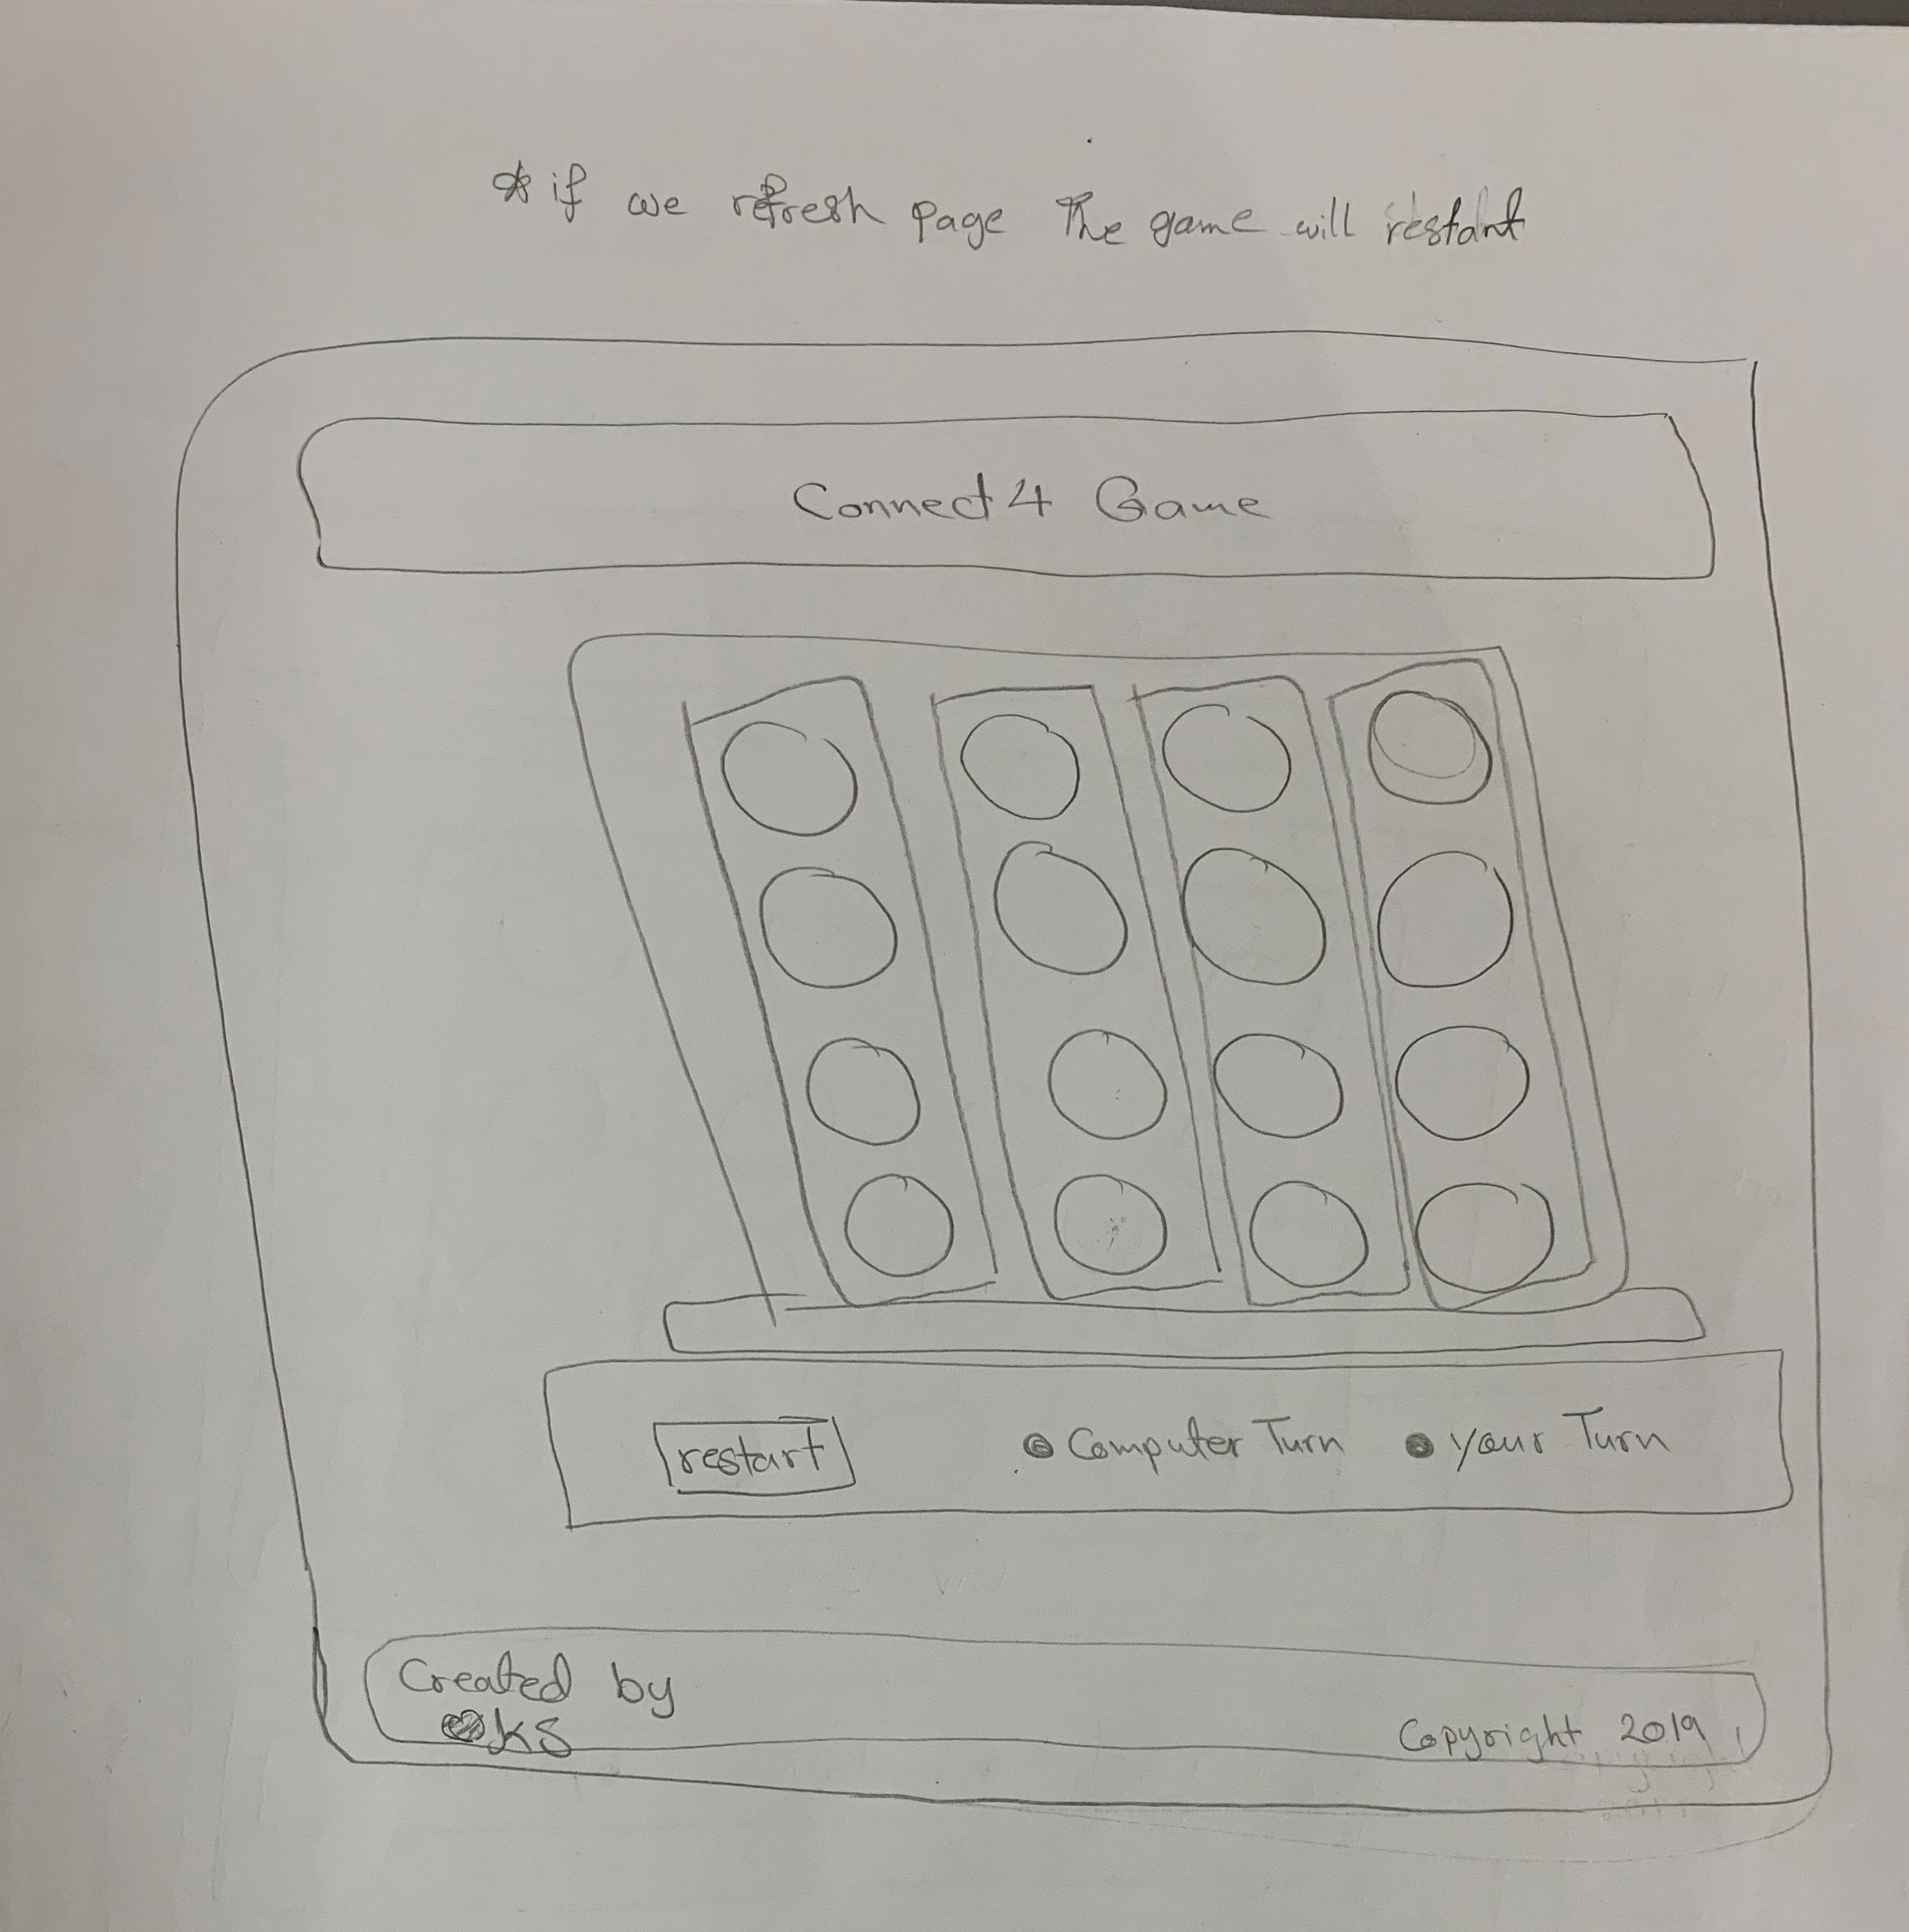 * if we refresh page The game will restart
Connect 4 Game
restart
Computer Turn
your Turn
Created by
KS
Copyright 2019